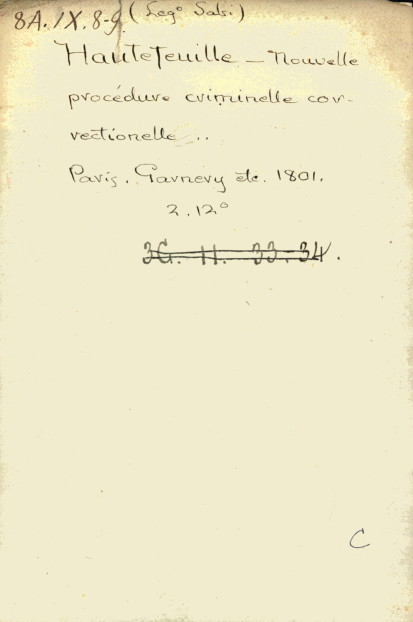 8A. IX. 8-9. (Leg° Salsi)
Hautefeuille – Nouvelle
procédure criminelle cor-
rectionelle ..
Paris. Garnery etc. 1801.
2. 12°
3G. H. 33-34.
C